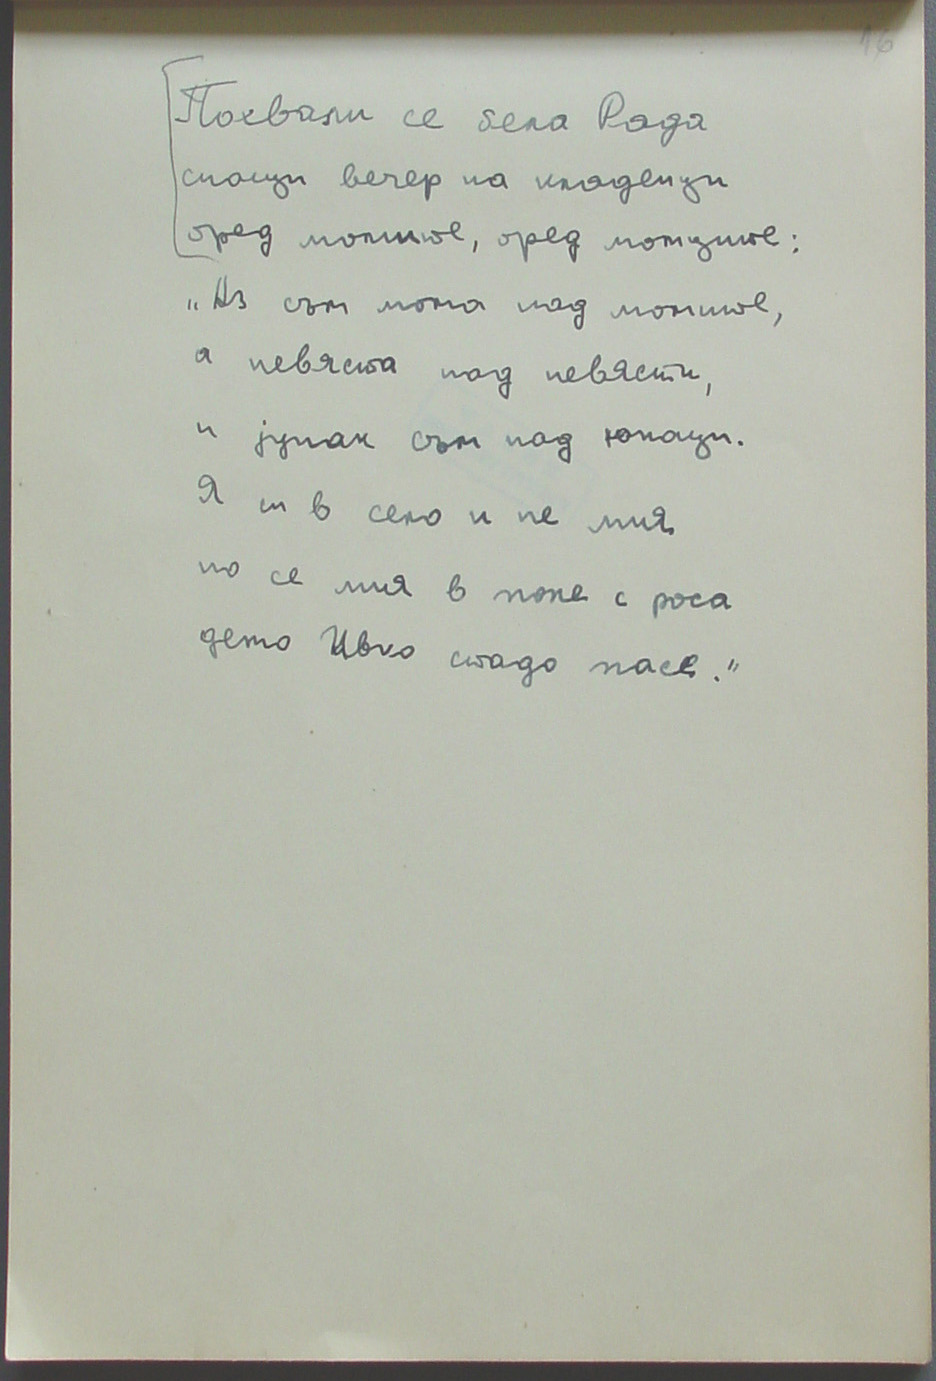 16
Похвали се бела Рада
снощи вечер на кладенци
сред момите, сред момците:
„Аз съм мома над момите,
а невяста над невясти,
и јунак съм над юнаци.
Я си в село и не мия
но се мия в поле с роса
дето Ивко стадо пасе."